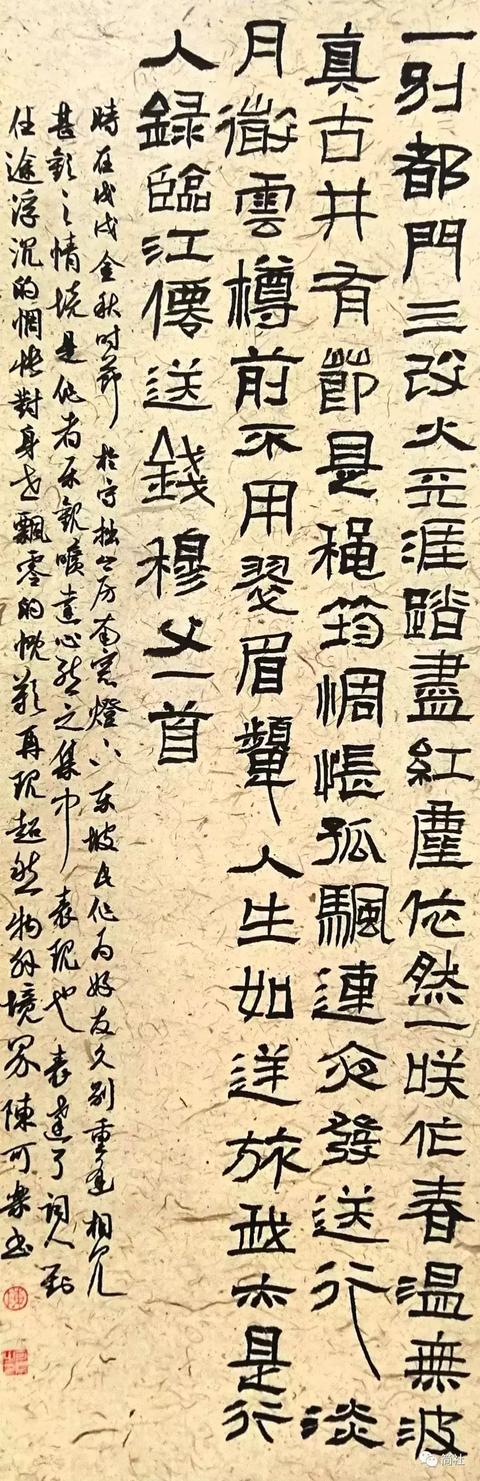 一别都門三改火天涯踏盡紅塵依然一咲作春温無波
真古井有節是秋筠惆悵孤颿連夜發送行淡
月微雲樽前不用翠眉顰人生如逆旅我亦是行
人録臨江僊送錢穆父一首
時在戊戌金秋时節於守拙公房南窗燈下东坡此作为好友久别重逢相見
甚歡之情境是作者乐觀曠達心態之集中表現也表達了詞人對
仕途浮沉的惆悵對身世飄零的慨歎再現超然物外境界陳可樂书
简社